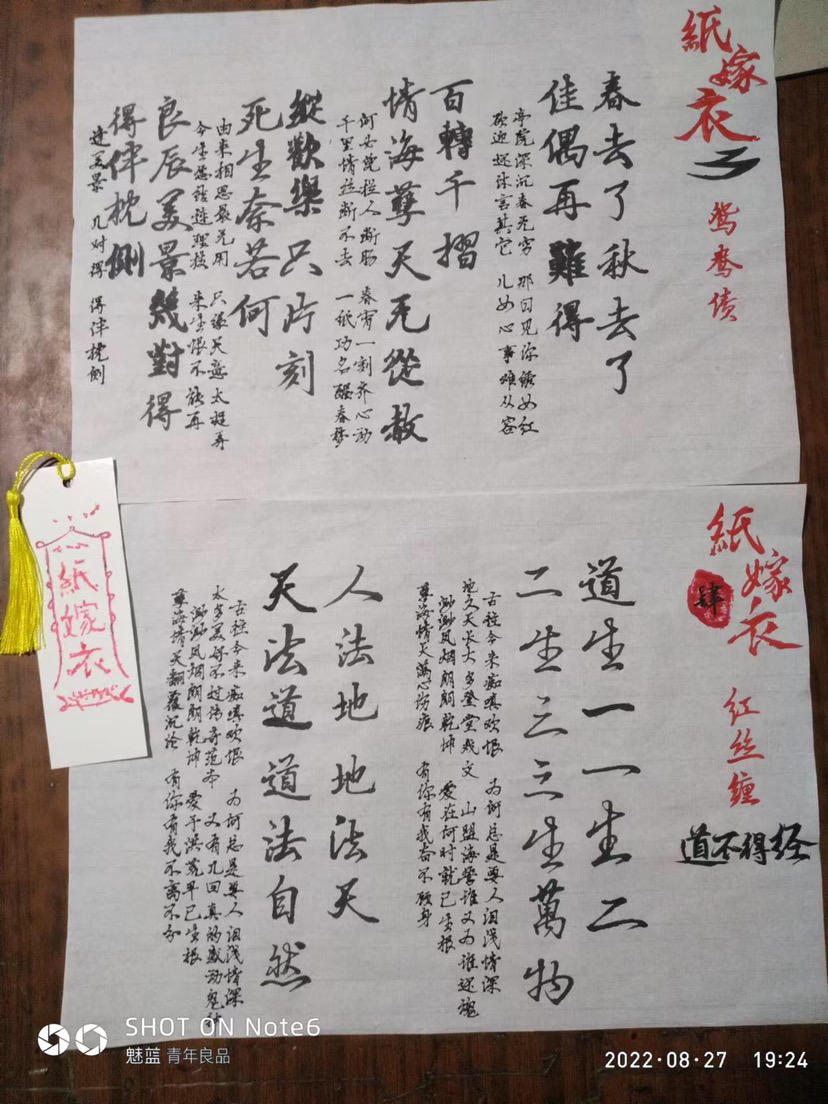 紙嫁衣3
鸳鸯债
春去了秋去了
佳偶再難得
亭院深沉春无穷 那日见你绣女红
欢迎还休言其它 儿女心事难从容
百轉千摺
情海孽天无從赦
何必凭栏人断肠 春宵一刻齐心动
千里情丝断不去 一纸功名醒春梦
縱歡樂只片刻
死生奈若何
由来相思最无用 只谦天意太捉弄
今生愁发连理枝 来生恨不能再
良辰美景幾對得
得伴枕側
建美景 几对得 得伴枕侧
紙嫁衣
肆
红丝缠
道不得经
道生一一生二
二生三三生萬物
古往今来痴嗔欢恨 为何总是要人泪浅情深
地久天长大多登堂戏文 山盟海誓谁又为谁还魂
渺渺风烟朗朗乾坤 爱在何时就已生根
孽海情天满心伤痕 有你有我奋不顾身
人法地地法天
天法道道法自然
古往今来痴嗔欢恨 为何总是要人泪浅情深
太多美好不过传奇范本 又有几回真的感动鬼神
渺渺风烟朗朗乾坤 爱于洪荒早已生根
孽海情天翻覆沉沦 有你有我不离不分
紙嫁衣
SHOT ON Note6
魅蓝 青年良品
2022·08·27 19:24